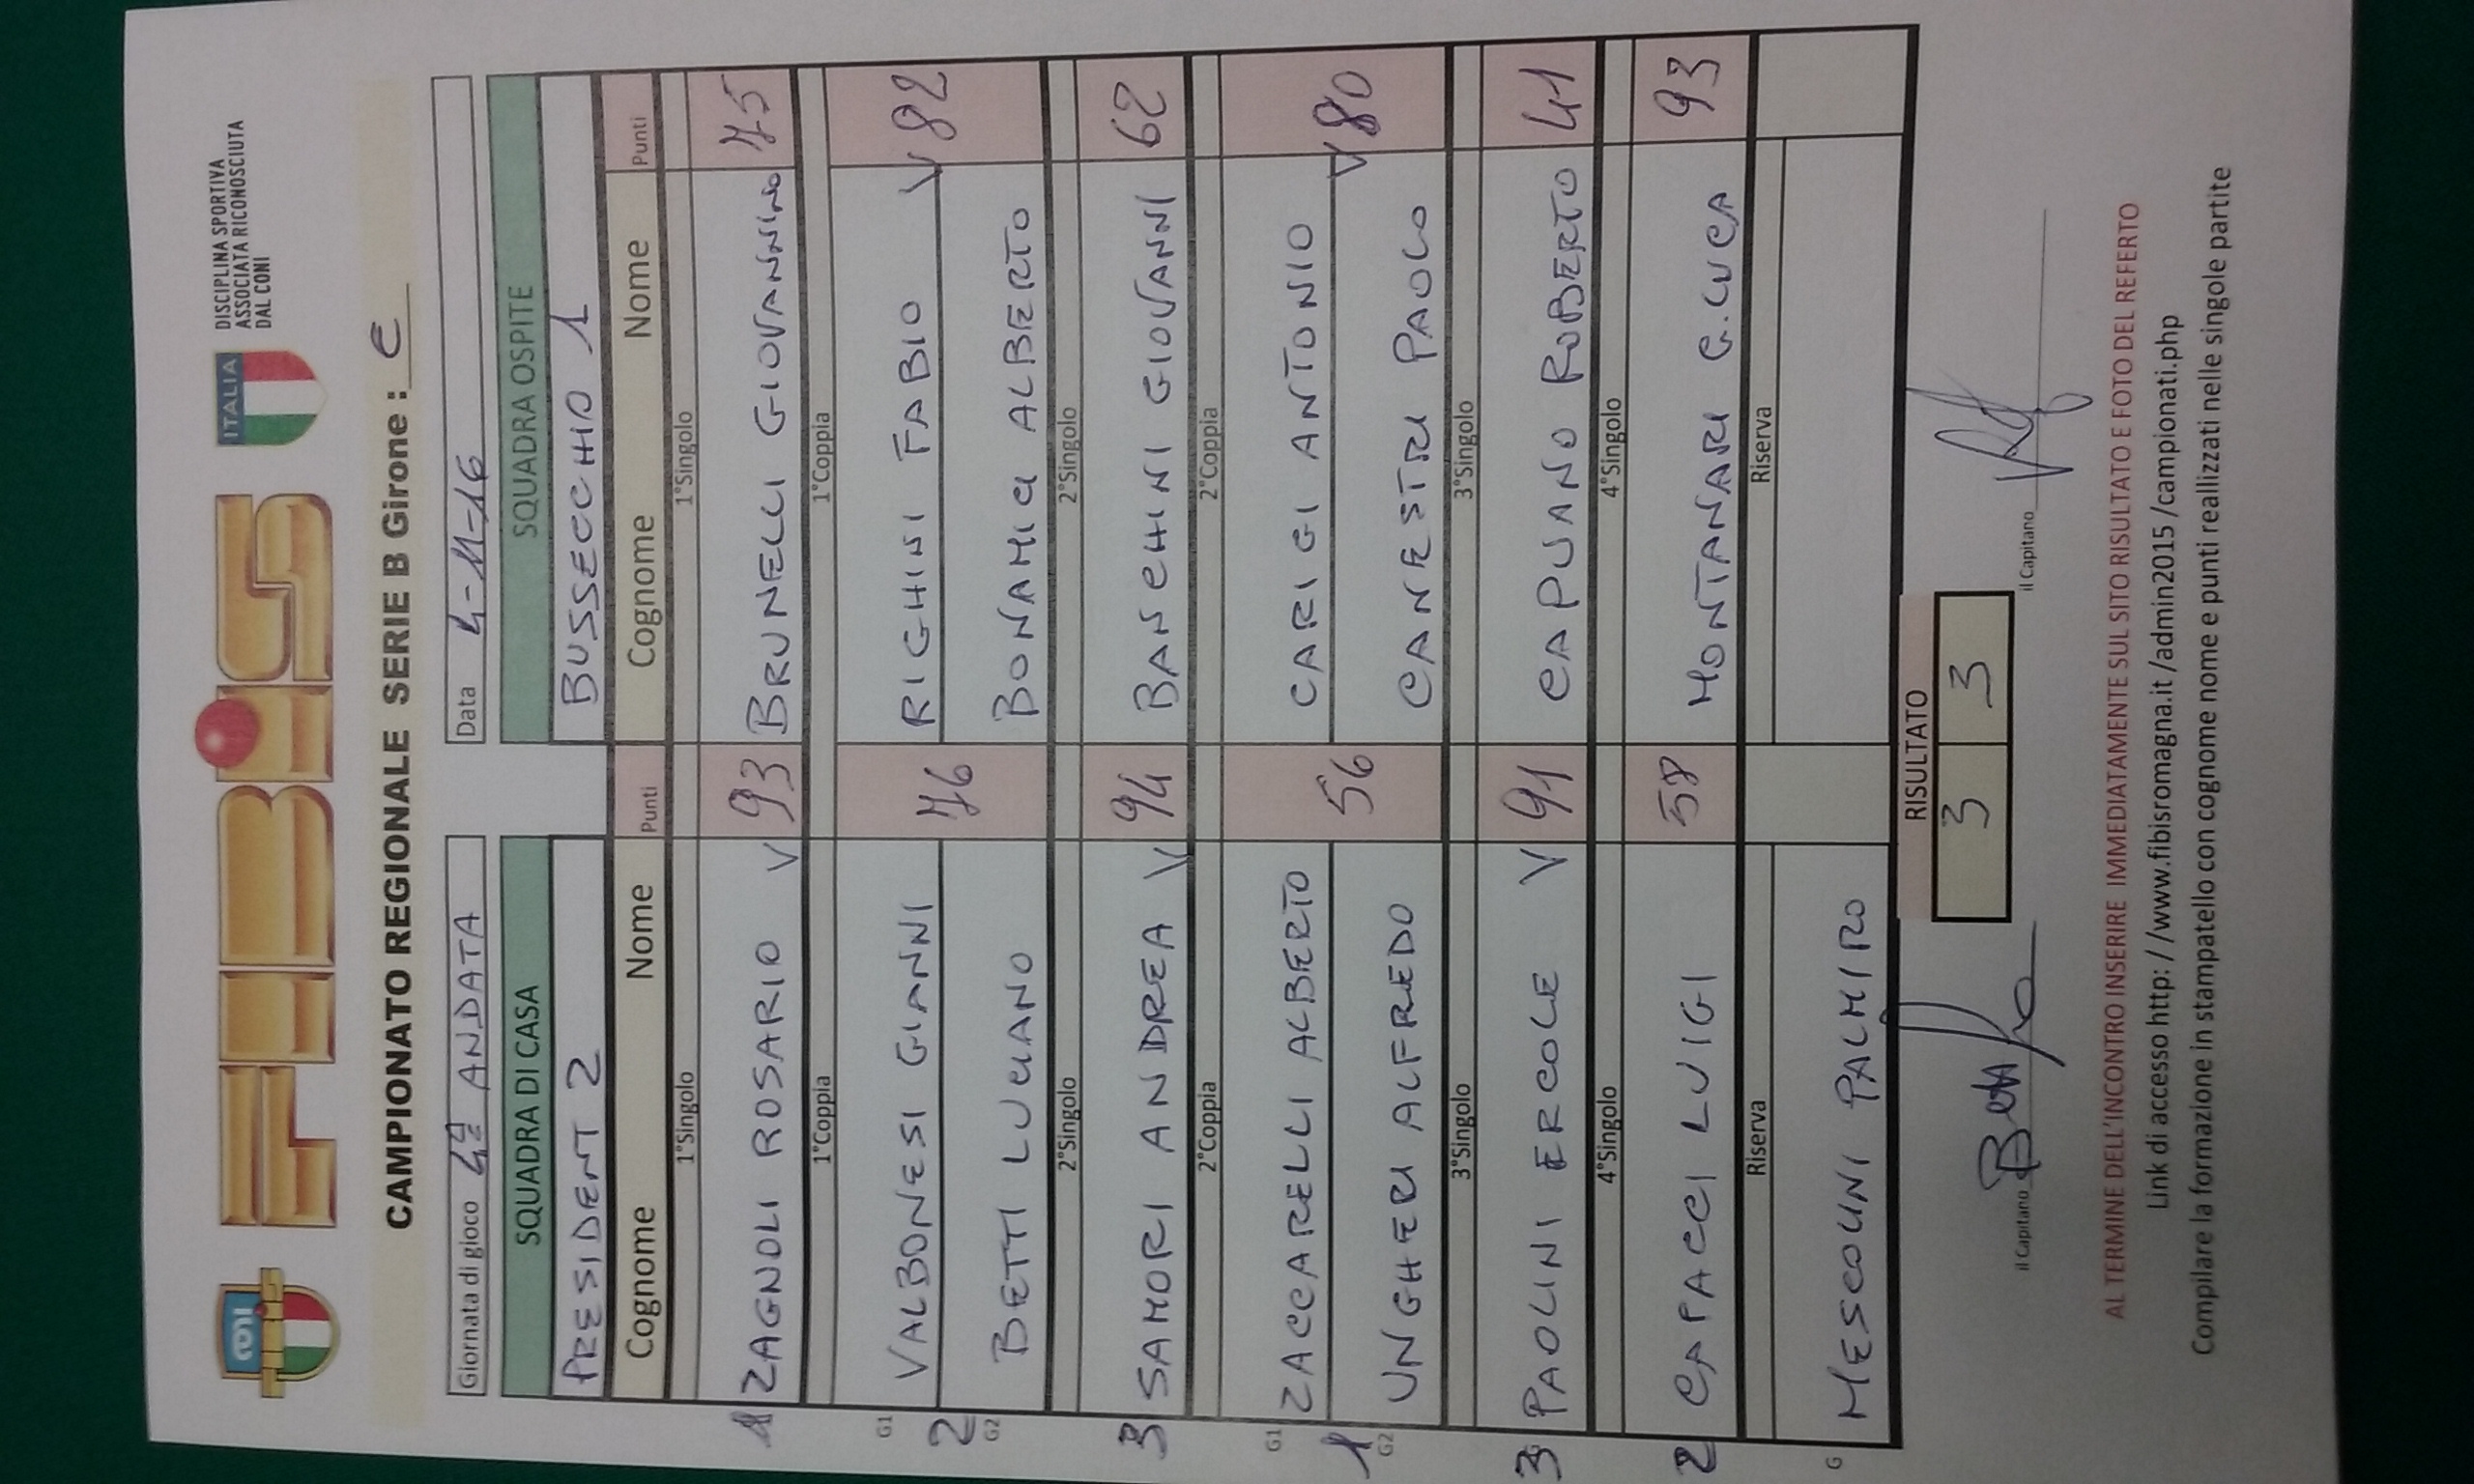 CONI
FIBIS
ITALIA
DISCIPLINA SPORTIVA
ASSOCIATA RICONOSCIUTA
DAL CONI
CAMPIONATO REGIONALE SERIE B Girone : C
Giornata di gioco 4ª ANDATA Data 4-11-16
SQUADRA DI CASA SQUADRA OSPITE
PRESIDENT 2 BUSSECCHIO 1
Cognome Nome Punti Cognome Nome Punti
1°Singolo 1°Singolo
1 ZAGNOLI ROSARIO V 93 BRUNELLI GIOVANNINO 75
1°Coppia 1°Coppia
G1 VALBONESI GIANNI RIGHINI FABIO V
2 76 82
G2 BETTI LUCIANO BONAMICI ALBERTO
2°Singolo 2°Singolo
3 SAMORI ANDREA V 94 BANCHINI GIOVANNI 62
2°Coppia 2°Coppia
G1 ZACCARELLI ALBERTO CARIGI ANTONIO
1 56 V 80
G2 UNGHERI ALFREDO CANESTRI PAOLO
3°Singolo 3°Singolo
3 PAOLINI ERCOLE V 91 CAPUANO ROBERTO 41
4°Singolo 4°Singolo
2 CAPACCI LUIGI 58 MONTANARI G.LUCA 93
Riserva Riserva
G MESCOLINI PALMIRO
RISULTATO
3 3
il Capitano il Capitano
AL TERMINE DELL'INCONTRO INSERIRE IMMEDIATAMENTE SUL SITO RISULTATO E FOTO DEL REFERTO
Link di accesso http: / /www.fibisromagna.it /admin2015 /campionati.php
Compilare la formazione in stampatello con cognome nome e punti reallizzati nelle singole partite